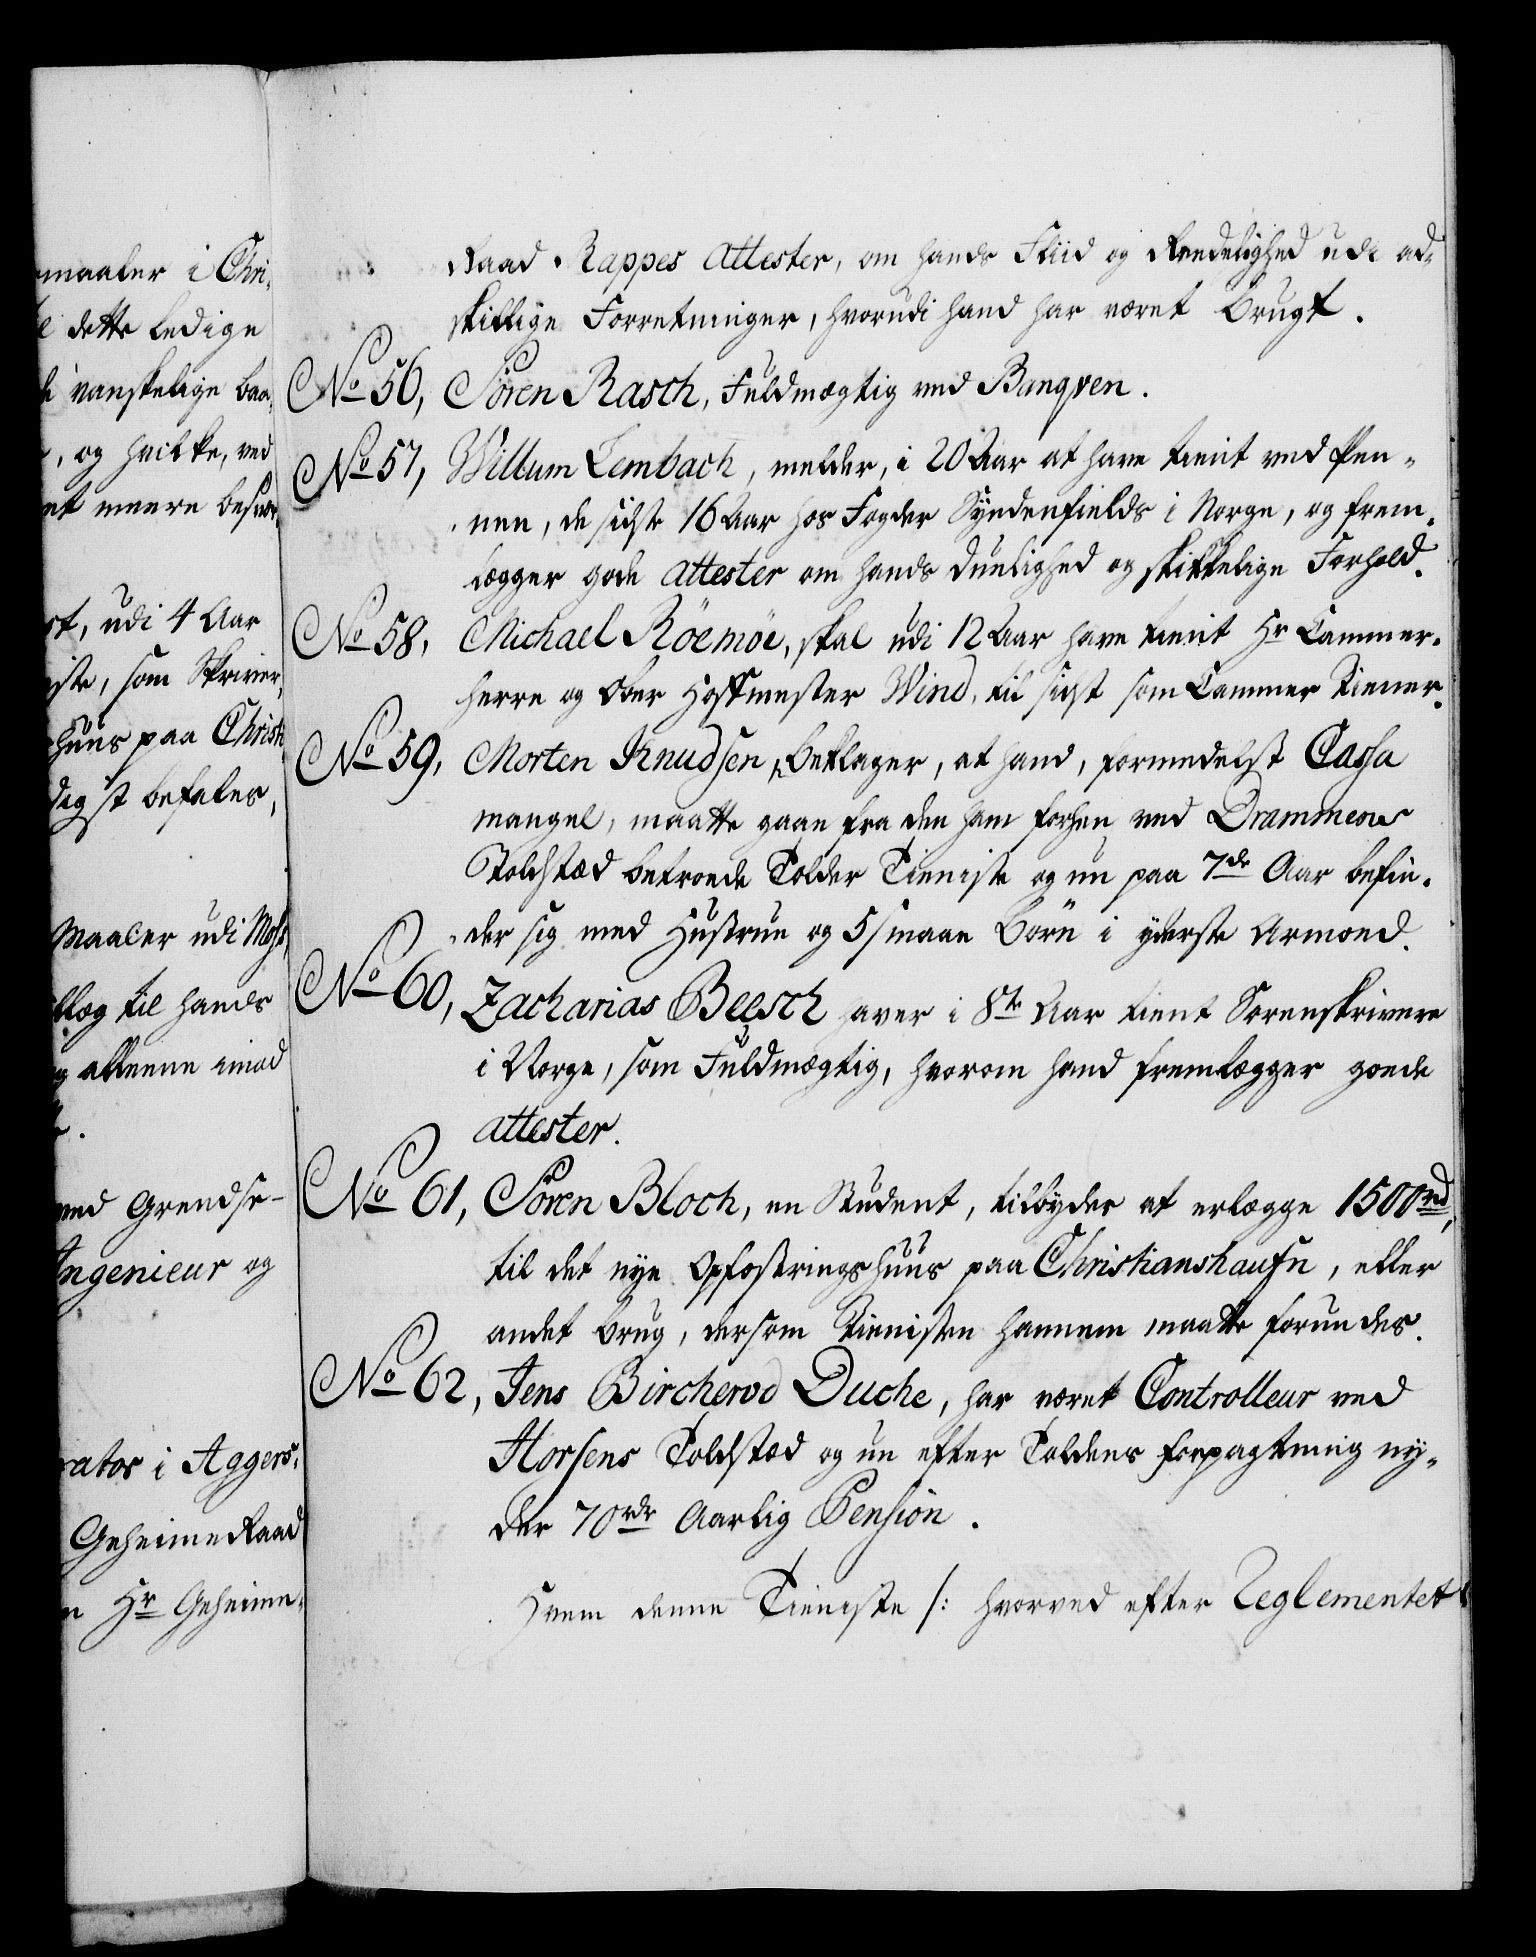 maaler i Chri-
dette Ledige
vanskelige baa-
, og hvilke, ved
et meere besvær-
st, udi 4 Aar
iste, som Skriver,
huus paa Christi
digst befales,
Maaler udi Moss,
llæg til hands
g alleene imod
ved Grendse-
Ingenieur og
rator i Aggers-
Geheime Raad
n Hr Geheime-
Raad Rappes Attester, om hands Fliid og Reedelighed udi ad-
skillige Forretninger, hvorudi hand har været brugt.
No 56, Sören Rasch, Fuldmægtig ved Banqven.
No 57, Willum Lembach, melder, i 20 Aar at have tient ved Pen-
nen, de sidste 16 Aar hos Fogder Syndenfields i Norge, og frem-
lægger gode Attester om hands Duelighed og skikkelige Forhold.
No 58, Michael Röemöe, skal udi 12 Aar have tient Hr Cammer-
herre og Ober Hoffmester Wind, til sidst som Cammer Tiener.
No 59, Morten Knudsen, beklager, at hand, formedelst Cassa
mangel, maatte gaae fra den ham forhen ved Drammens
Toldstæd betroede Tolder Tieniste og nu paa 7de Aar befin-
der sig med Hustrue og 5 smaae Börn i yderste Armoed.
No 60, Zacharias Beesch haver i 8te Aar tient Sorenskrivere
i Norge, som Fuldmægtig, hvorom hand fremlægger goede
attester.
No 61, Sören Bloch, en Student, tilbyder at erlægge 1500 rd,
til det nye Opfostringshuus paa Christianshaufn, eller
andet brug, dersom Tienisten hannem maatte forundes.
No 62, Jens Bircherod Duche, har været Controlleur ved
Horsens Toldstæd og nu efter Toldens forpagtning ny-
der 70 rdr Aarlig Pension.
Hvem denne Tieniste /: hvorved efter Reglementet